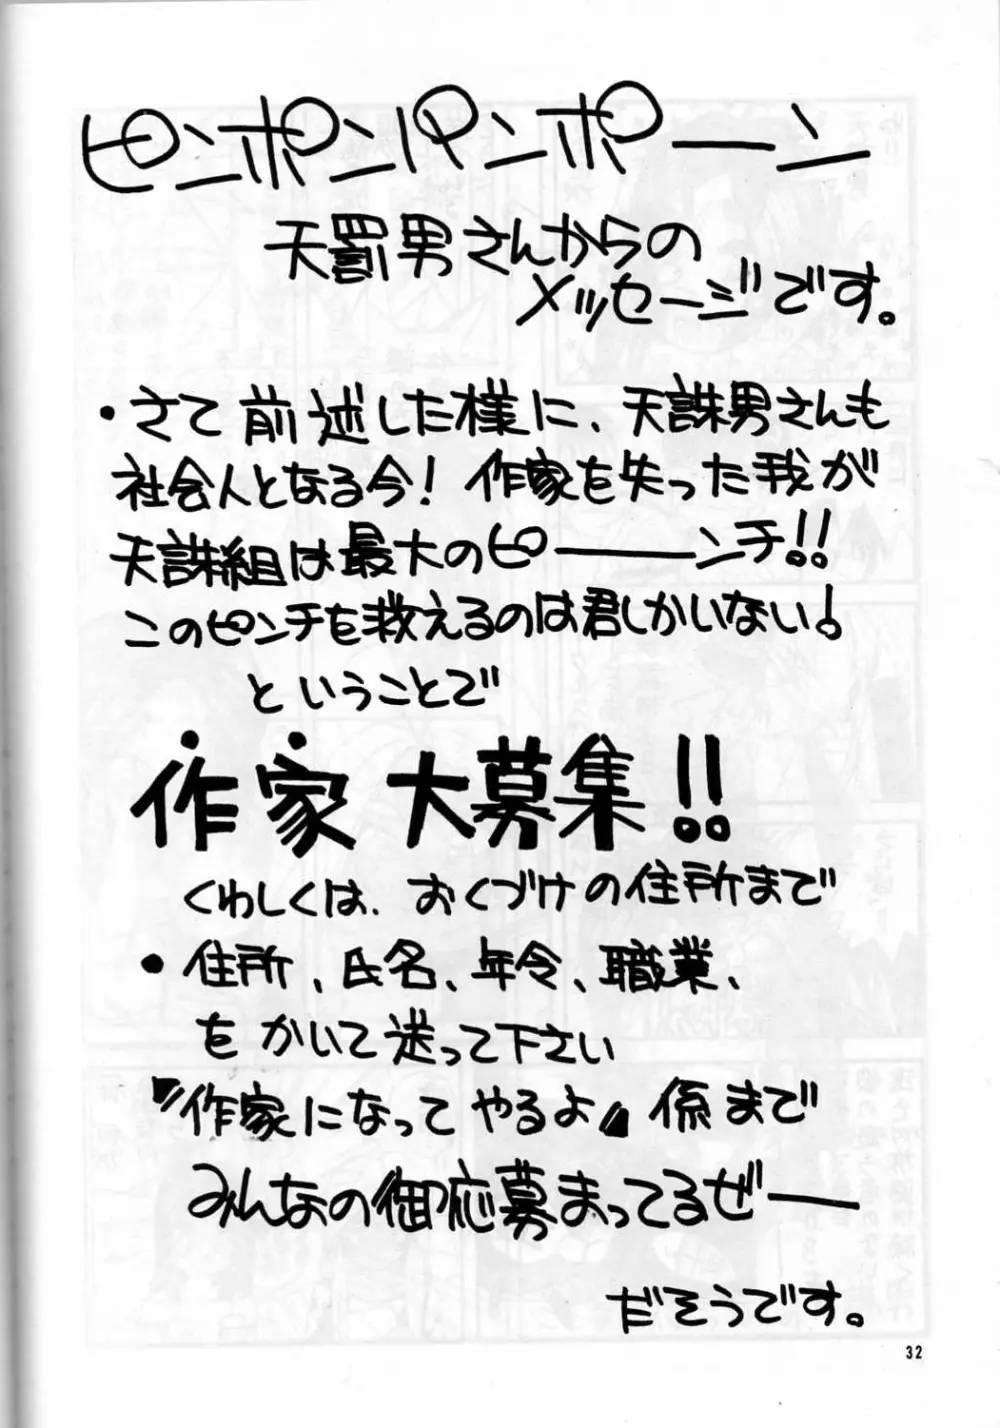 ピンポンパンポーン
天罰男さんからの
メッセージです。
・さて前述した様に、天誅男さんも
社会人となる今!作家を失った我が
天誅組は最大のピーーンチ!!
このピンチを救えるのは君しかいない!
ということで
作家大募集!!
くわしくは、おくづけの住所まで
・住所、氏名、年令、職業、
をかいて送って下さい
『作家になってやるよ』係まで
みんなの御応募まってるぜー
だそうです。
32